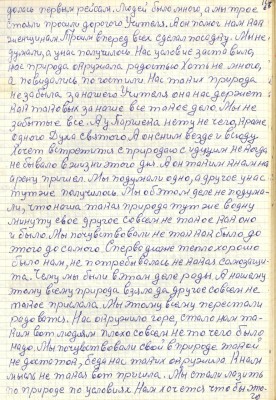 делась первым рейсам. Людей было много, а мы трое
стояли просили дорогого Учителя. А он помог нам как
женщинам. Троим вперед всех сделал посадку. Мы не
думали, а у нас получилось. Нас условие заставило,
нас природа окружала радостью. Хоть не много,
а повидались погостили. Нас таких природа
не забыла за нашего Учителя она нас держит.
Как таковых за наше все такое дело. Мы не
забытые все. А у Паршека нету не чего, кроме
одного Духа святого. А он с ним везде и всюду
хочет встретится с природою с идущим не когда
не бывало в жизни этого дня. А он таким к нам на
арену пришел. Мы подумали одно, а другое у нас
тут же получилось. Мы об этом деле не подума-
ли, что наша такая природа тут же в одну
минуту свое другое совсем не такое как оно
и было. Мы почувствовали не так как было до
этого до самого. Сперва даже тепло хорошо
было нам, не потребовалась не какая самозащи-
та. Чему мы были в этом деле рады. А нашему
этому всему природа взяла да другое совсем не
такое прислала. Мы этому всему перестали
радоватся. Нас окружило горе, стало нам та-
ким вот людям плохо совсем не то чего было
надо. Мы почувствовали свой в природе такой
не достаток, беда нас таких окружила. К нам
мысль не такая вот пришла. Мы стали лазить
по природе по условиях. Нам хочется что бы это-
го